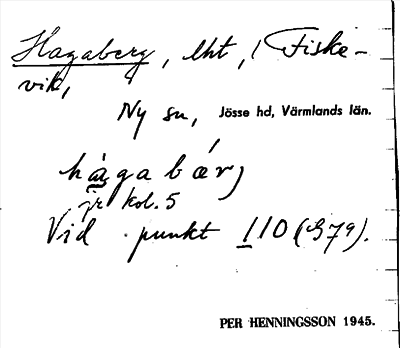 Hagaberg, lht, / Fiske-
vik,
Ny sn, Jösse hd, Värmlands län.
hagabærj
jr kol. 5
Vid punkt 110 (979).
PER HENNINGSSON 1945.